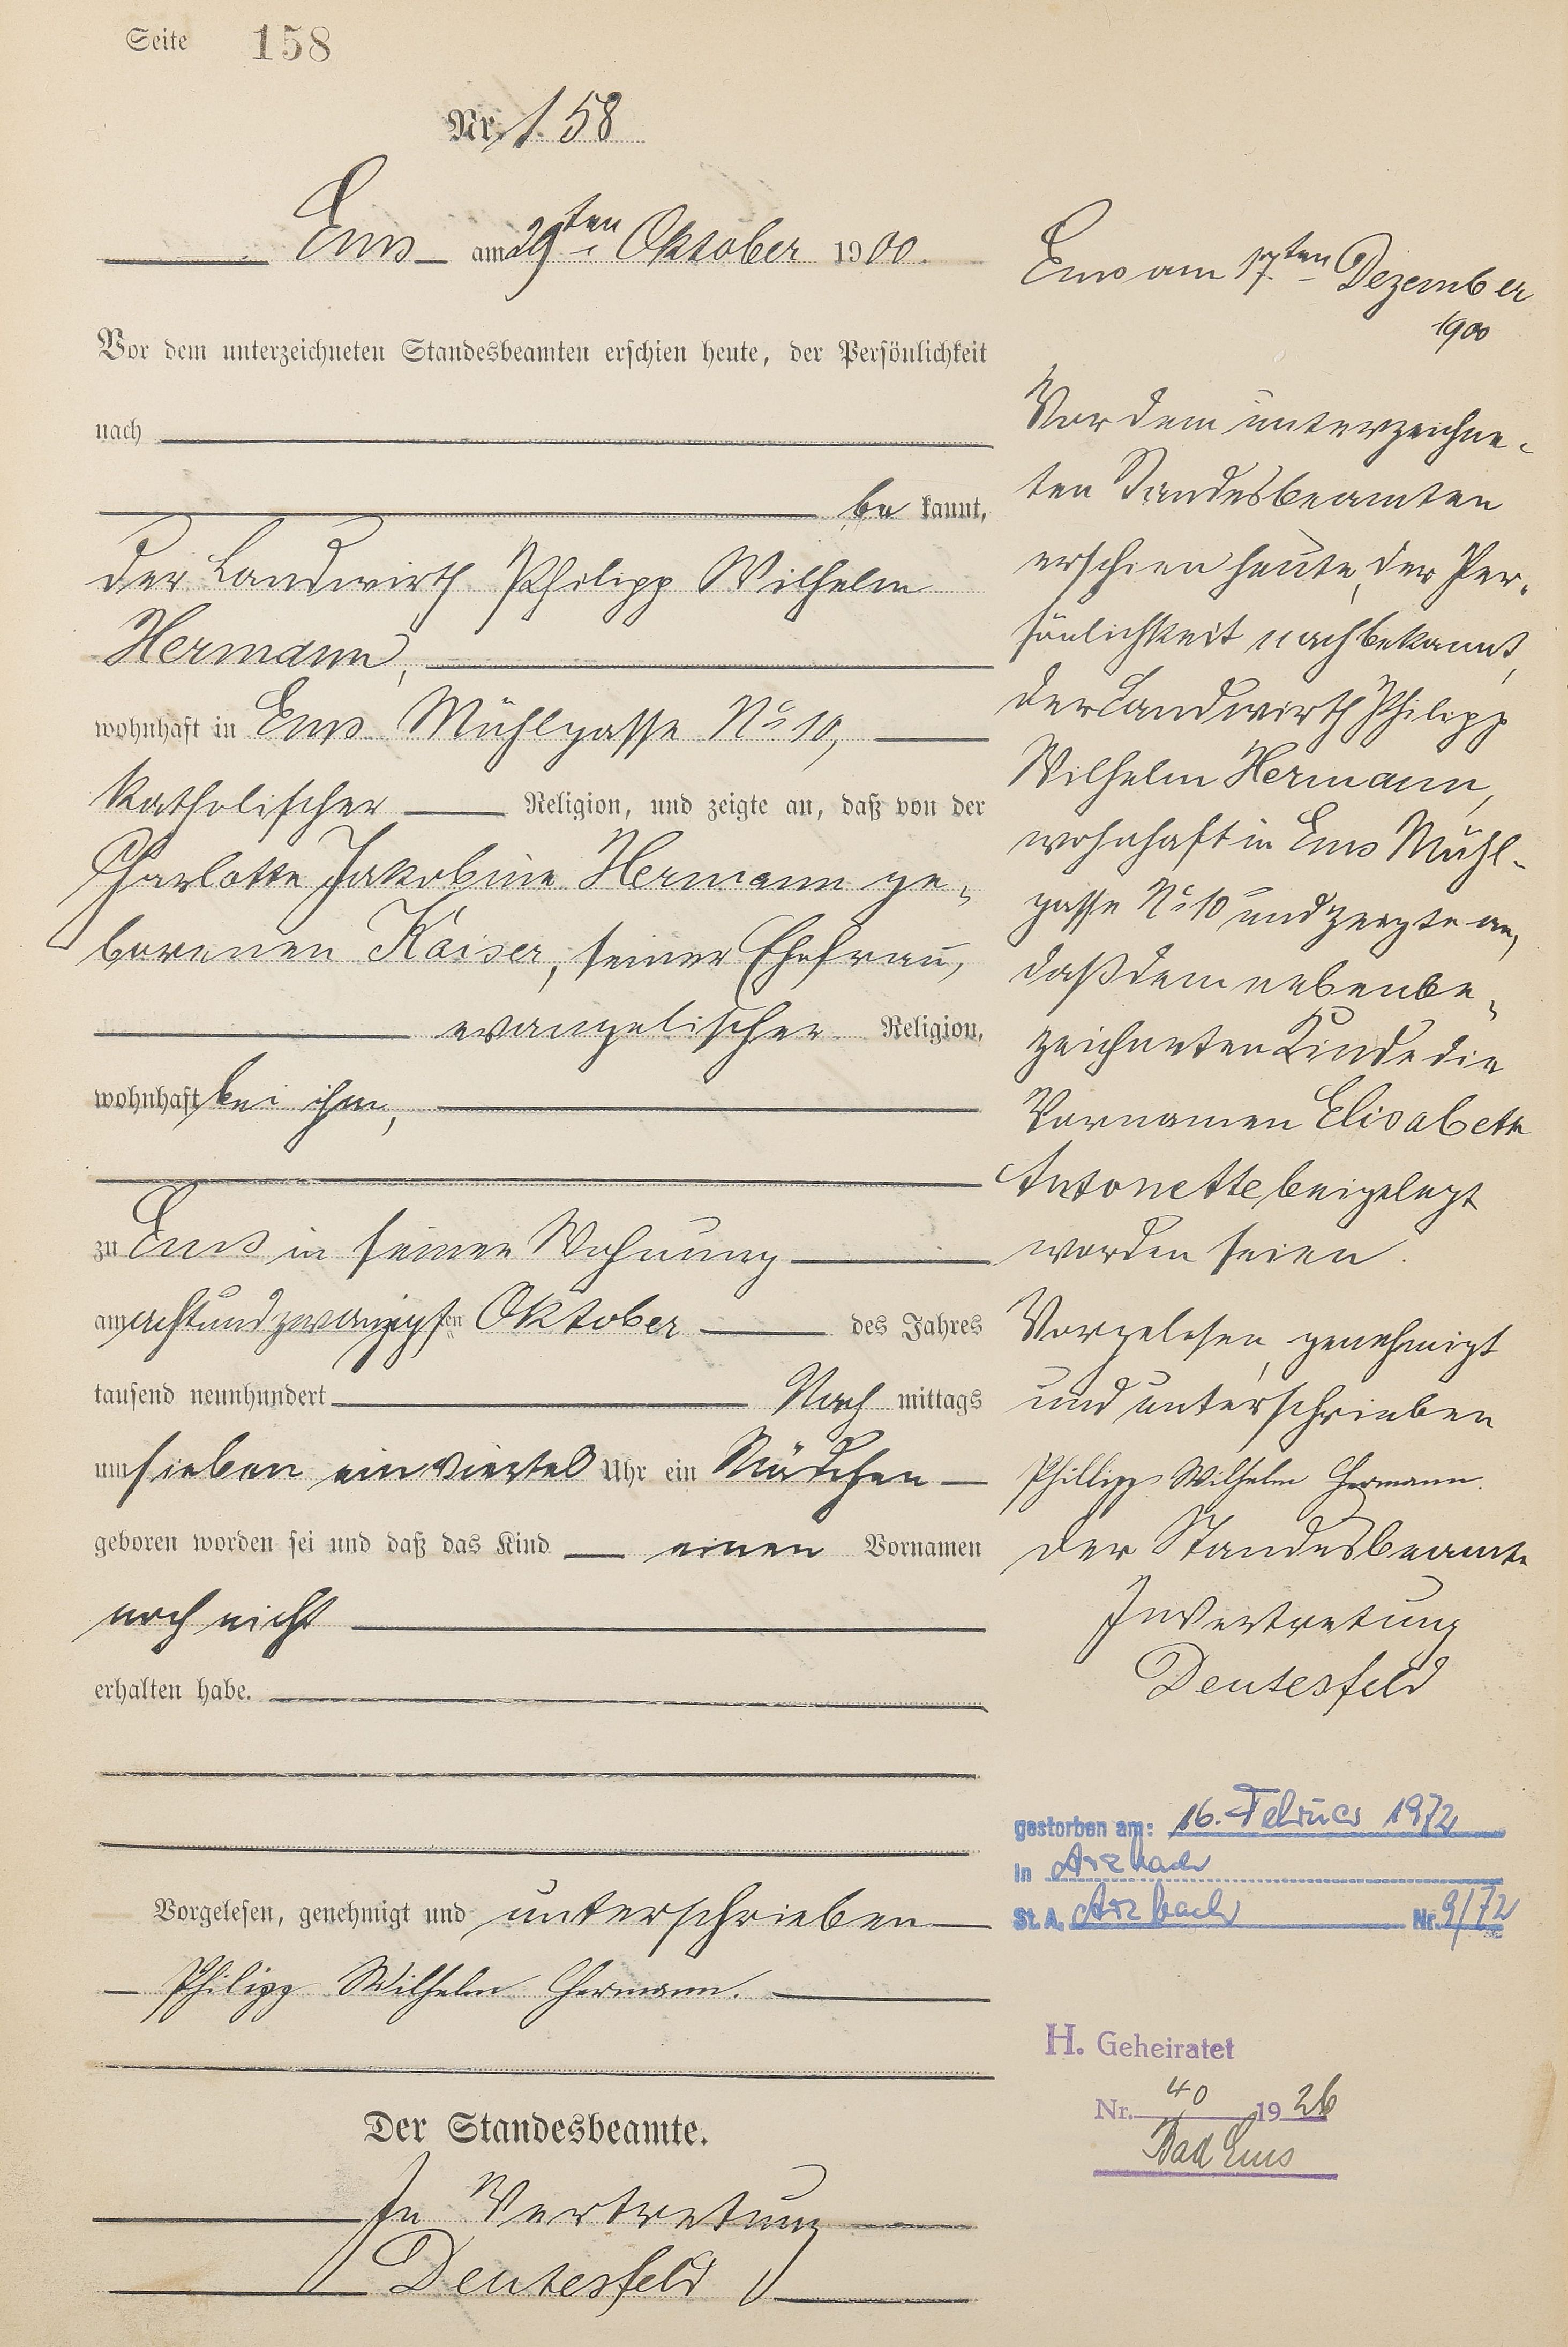 Seite 158
Nr. 158
Ems am 29ten Oktober 1900.
Vor dem unterzeichneten Standesbeamten erschien heute, der Persönlichkeit
nach
be kannt,
der Landwirth Philipp Wilhelm
Hermann,
wohnhaft in Ems Mühlgasse No 10,
katholischer Religion, und zeigte an, daß von der
Charlotte Jakobine Hermann ge-
borenen Kaiser, seiner Ehefrau,
evangelischer Religion,
wohnhaft bei ihm,
zu Ems in seiner Wohnung
am achtundzwanzigsten Oktober des Jahres
tausend neunhundert Nach mittags
um sieben einviertel Uhr ein Mädchen
geboren worden sei und daß das Kind einen Vornamen
noch nicht
erhalten habe.
Vorgelesen, genehmigt und unterschrieben
Philipp Wilhelm Hermann.
Der Standesbeamte.
In Vertretung
Deutesfeld
Ems am 17.ten Dezember
1900
Vor dem unterzeichne-
ten Standesbeamten
erschien heute, der Per-
sönlichkeit nach bekannt,
der Landwirth Philipp
Wilhelm Hermann,
wohnhaft in Ems Mühl-
gasse No 10 und zeigte an,
daß dem nebenbe-
zeichneten Kinde die
Vornamen Elisabeth
Antonette beigelegt
worden seien.
Vorgelesen, genehmigt
und unterschrieben
Phillipp Wilhelm Hermann.
Der Standesbeamte
In Vertretung
Deutesfeld
gestorben am: 16. Februar 1972
in Arzbach
St. A. Arzbach Nr. 9/72
H. Geheiratet
Nr. 40 1926
Bad Ems